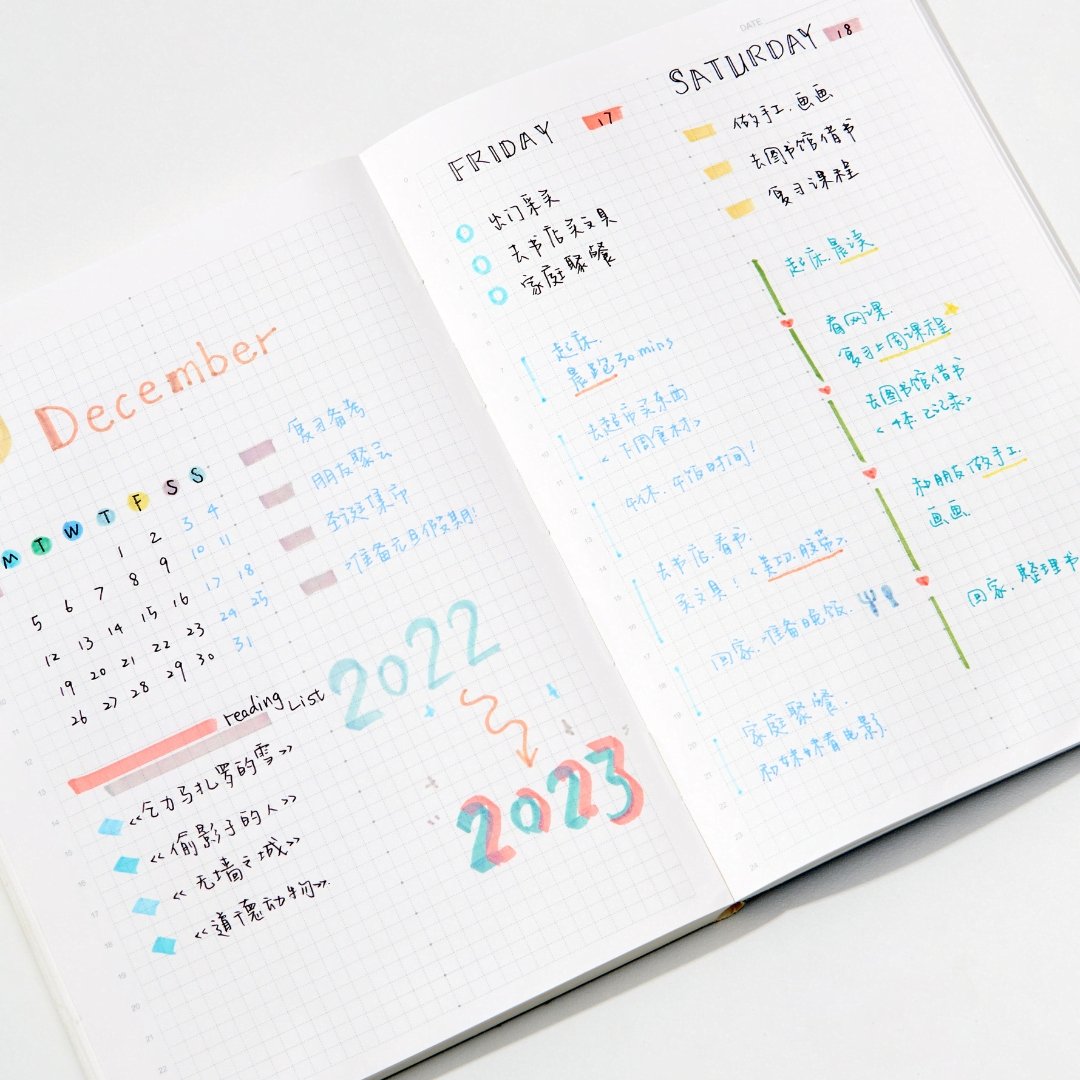 December
M T W T F S S
1 2 3 4
5 6 7 8 9 10 11
12 13 14 15 16 17 18
19 20 21 22 23 24 25
26 27 28 29 30 31
复习备考
朋友聚会
圣诞集市
准备元旦假期!
reading List
《乞力马扎罗的雪》
《偷影子的人》
《无墙之城》
《道德动物》
2022
2023
FRIDAY 17
出门采买
去书店买文具
家庭聚餐
起床.
晨跑30mins
去超市买东西
<下周食材>
午休.午饭时间!
去书店看书.
买文具!<美工刀.胶带>
回家.准备晚饭.
家庭聚餐.
和妹妹看电影
DATE
SATURDAY 18
做手工.画画
去图书馆借书
复习课程
起床.晨读
看网课.
复习上周课程
去图书馆借书
<4本.记录>
和朋友做手工
画画.
回家.整理书